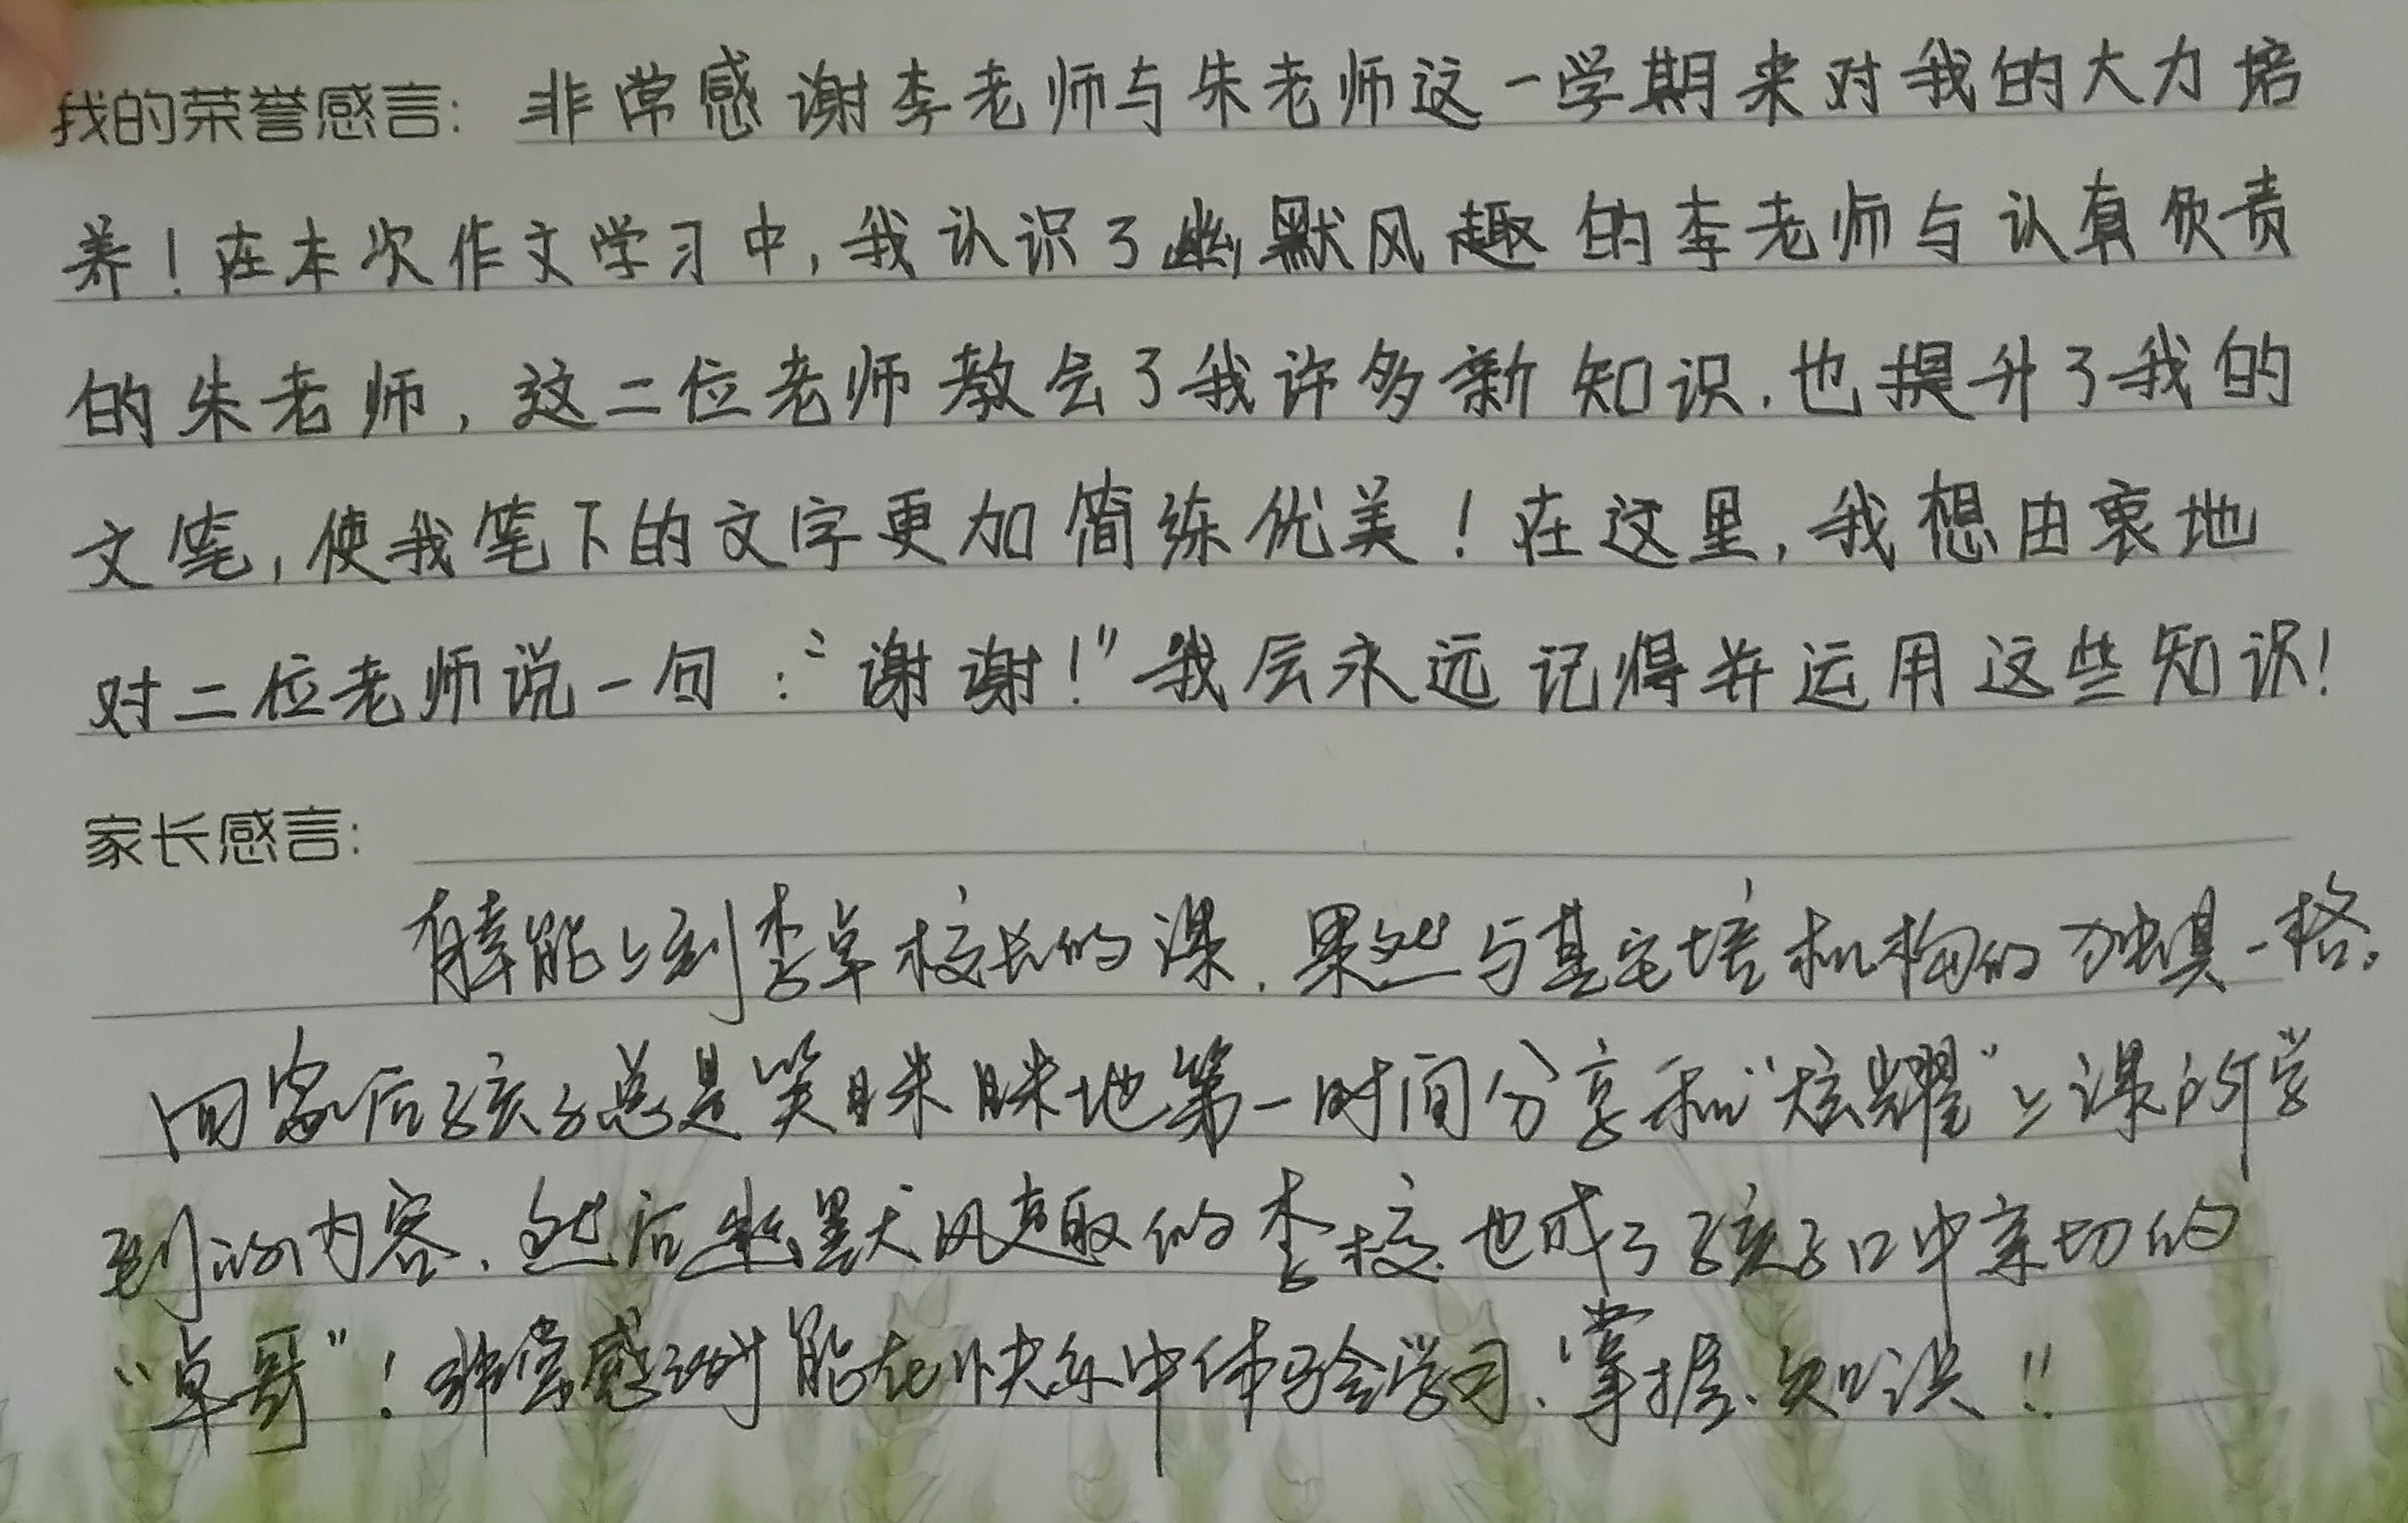 我的荣誉感言: 非常感谢李老师与朱老师这一学期来对我的大力培
养！在本次作文学习中,我认识了幽默风趣的李老师与认真负责
的朱老师,这二位老师教会了我许多新知识.也提升了我的
文笔,使我笔下的文字更加简练优美！在这里,我想由衷地
对二位老师说一句:“谢谢！”我会永远记得并运用这些知识！
家长感言:
有幸能上到李卓校长的课.果然与其它培机构的独具一格。
回家后孩子总是笑眯眯地第一时间分享和“炫耀”上课所学
到的内容.然后幽默风趣的李校也成了孩子口中亲切的
“卓哥”！非常感谢能在快乐中体验学习、掌握知识!!